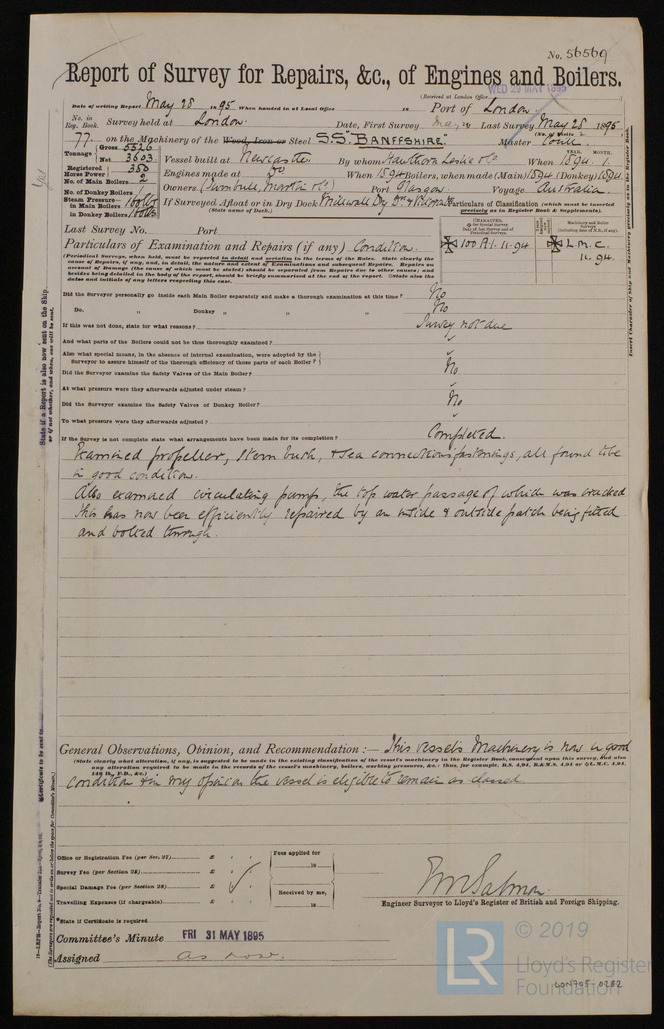 No. 56569
Report of Survey for Repairs, &c., of Engines and Boilers.
WED 29 MAY 1895
(Received at London Office
Date of writing Report May 28 1895 When handed in at Local Office 18 Port of London
No. in Reg. Book. Survey held at London. Date, First Survey May Last Survey May 28 1895
77. on the Machinery of the Wood, Iron or Steel S.S. "BANFFSHIRE." Master
Tonnage Gross 5526 Net 3603 Vessel built at Newcastle By whom Hawthorn Leslie & Co When 1894. 1.
Registered Horse Power 350 Engines made at Do When 1894 Boilers, when made (Main) 1894 (Donkey) 1894
No. of Main Boilers 2
No. of Donkey Boilers Owners Turnbull, Martin & Co Port Glasgow. Voyage Australia.
Steam Pressure in Main Boilers 160 lbs If Surveyed Afloat or in Dry Dock Millwall Dry Dk
in Donkey Boilers (State name of Dock.)
Particulars of Classification (which must be inserted precisely as in Register Book & Supplements).
Last Survey No. Port
Particulars of Examination and Repairs (if any) Condition.
CHARACTER.
Machinery and Boiler Surveys
YEAR. MONTH.
100 A1. 11.94
L.M.C. 11.94.
(Periodical Surveys, when held, must be reported in detail and seriatim in the terms of the Rules. State clearly the
cause of Repairs, if any, and, in detail, the nature and extent of Examinations and subsequent Repairs. Repairs on
account of Damage (the cause of which must be stated) should be separated from Repairs due to other causes; and
besides being detailed in the body of the report, should be briefly summarised at the end of the report. State also the
dates and initials of any letters respecting this case.
Did the Surveyor personally go inside each Main Boiler separately and make a thorough examination at this time? No
Do. " Donkey " " " No
If this was not done, state for what reasons? Survey not due
And what parts of the Boilers could not be thus thoroughly examined?
Also what special means, in the absence of internal examination, were adopted by the
Surveyor to assure himself of the thorough efficiency of those parts of each Boiler?
Did the Surveyor examine the Safety Valves of the Main Boiler? No
At what pressure were they afterwards adjusted under steam?
Did the Surveyor examine the Safety Valves of Donkey Boiler? No
To what pressure were they afterwards adjusted?
If the Survey is not complete state what arrangements have been made for its completion? Completed.
Examined propeller, Stern bush, & sea connections fastenings, all found to be
in good condition.
Also examined circulating pump, the top water passage of which was cracked
this has now been efficiently repaired by an inside & outside patch being fitted
and bolted through.
General Observations, Opinion, and Recommendation:— This vessel's Machinery is now in good
(State clearly what alteration, if any, is suggested to be made in the existing classification of the vessel's machinery in the Register Book, consequent upon this survey, and also
any alteration required to be made in the records of the vessel's machinery, boilers, working pressures, &c.: thus, for example, B.S. 4,94, B.&M.S. 4,94 or L.M.C. 4,94,
140 lb., F.D., &c.)
condition & in my opinion the vessel is eligible to remain as classed
Office or Registration Fee (per Sec. 27) £ : : Fees applied for
Survey Fee (per Section 28) £ : : 18
Special Damage Fee (per Section 28) £ : : Received by me,
Travelling Expenses (if chargeable) £ : : 18
*State if Certificate is required
Salmon.
Engineer Surveyor to Lloyd's Register of British and Foreign Shipping.
Committee's Minute FRI 31 MAY 1895
Assigned as now.
State if a Report is also now sent on the Ship
or if not whether, and when, one will be sent.
Insert Character of Ship and Machinery precisely as in the Register Book
LR
© 2019
Lloyd's Register
Foundation
LON705-0282